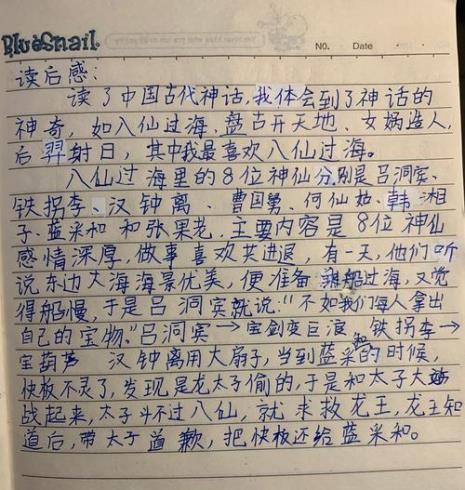 BlueSnail
NO. Date
读后感：
读了中国古代神话，我体会到了神话的
神奇，如八仙过海、盘古开天地、女娲造人，
后羿射日，其中我最喜欢八仙过海。
八仙过海里的8位神仙分别是吕洞宾、
铁拐李、汉钟离、曹国舅、何仙姑、韩湘
子、蓝采和和张果老，主要内容是8位神仙
感情深厚，做事喜欢共进退，有一天，他们听
说东边大海海景优美，便准备乘船过海，又觉
得船慢，于是吕洞宾就说："不如我们每人拿出
自己的宝物。"吕洞宾→宝剑变巨浪 铁拐李→
宝葫芦 汉钟离用大扇子，当到蓝采和的时候，
快板不灵了，发现是龙太子偷的，于是和太子大
战起来，太子斗不过八仙，就求救龙王，龙王知
道后，带太子道歉，把快板还给蓝采和。